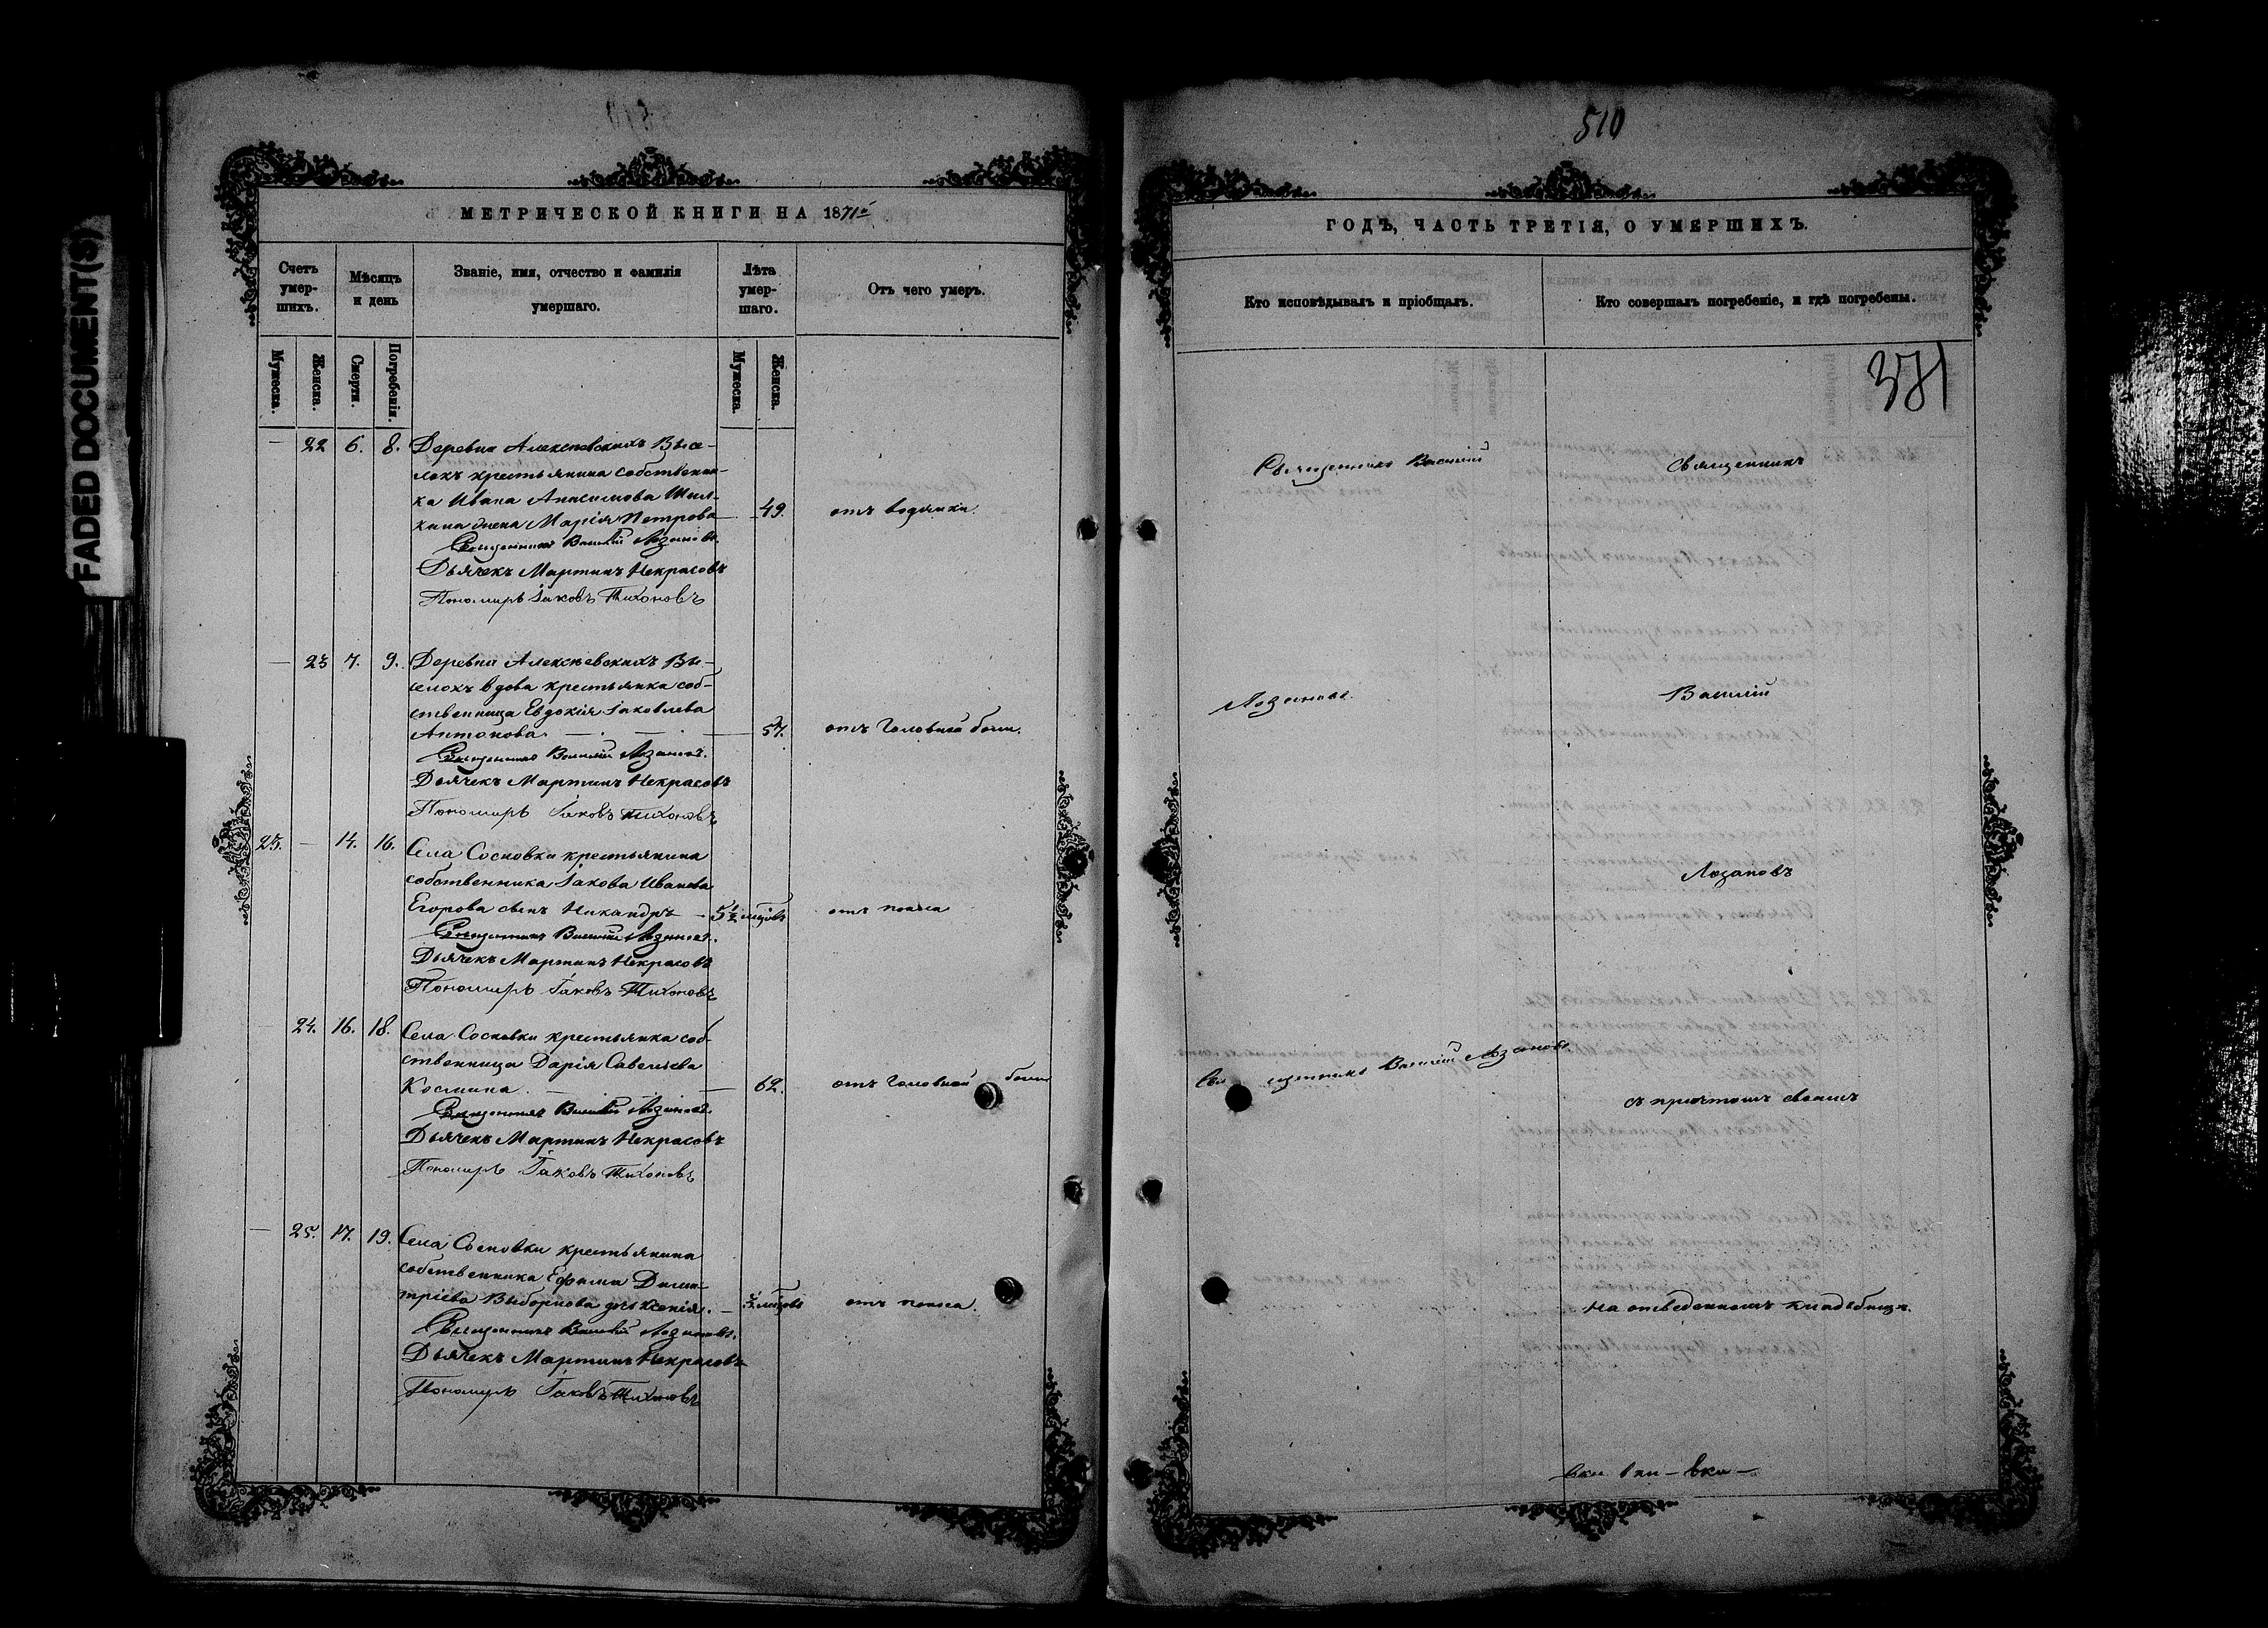 FADED DOCUMENT(S)
МЕТРИЧЕСКОЙ КНИГИ НА 1871й
Счетъ умер-шихъ.
Мѣсяцъ и день
Званіе, имя, отчество и фамилія умершаго.
Лѣта умер-шаго.
Отъ чего умеръ.
Мужеска.
Женска.
Смерти.
Погребенія.
Мужеска.
Женска.
— 22 6. 8. Деревни Алексѣевскихъ Высе-
локъ крестьянина собственни-
ка Ивана Анисимова
жена Марія Петрова — 49. отъ водянки.
Священникъ Василій Лозановъ.
Дьячекъ Мартинъ Некрасовъ
Пономарь Іаковъ Тихоновъ
— 23 7. 9. Деревни Алексѣевскихъ Вы-
селокъ вдова крестьянка соб-
ственница Евдокія Іаковлева
Антонова. — 57. отъ головной боли.
Священникъ Василій Лозановъ.
Дьячекъ Мартинъ Некрасовъ
Пономарь Іаковъ Тихоновъ
23. — 14. 16. Села Сосновки крестьянина
собственника Іакова Иванова
Егорова сынъ Никандръ — 5½ мѣсцовъ отъ поноса
Священникъ Василій Лозановъ.
Дьячекъ Мартинъ Некрасовъ
Пономарь Іаковъ Тихоновъ
24. 16. 18. Села Сосновки крестьянка соб-
ственница Дарія Савельева
Космина. — 62. отъ головной боли
Священникъ Василій Лозановъ.
Дьячекъ Мартинъ Некрасовъ
Пономарь Іаковъ Тихоновъ
— 25. 17. 19. Села Сосновки крестьянина
собственника Ефима Дими-
тріева Выборнова дочь Ксенія. — мѣсцовъ отъ поноса.
Священникъ Василій Лозановъ.
Дьячекъ Мартинъ Некрасовъ
Пономарь Іаковъ Тихоновъ
510
ГОДЪ, ЧАСТЬ ТРЕТІЯ, О УМЕРШИХЪ.
Кто исповѣдывалъ и пріобщалъ.
Кто совершалъ погребеніе, и гдѣ погребены.
371
Священникъ Василій
Священникъ
Лозановъ.
Василій
Лозановъ
Священникъ Василій Лозановъ.
съ причтомъ своимъ
на отведенномъ кладбищѣ.